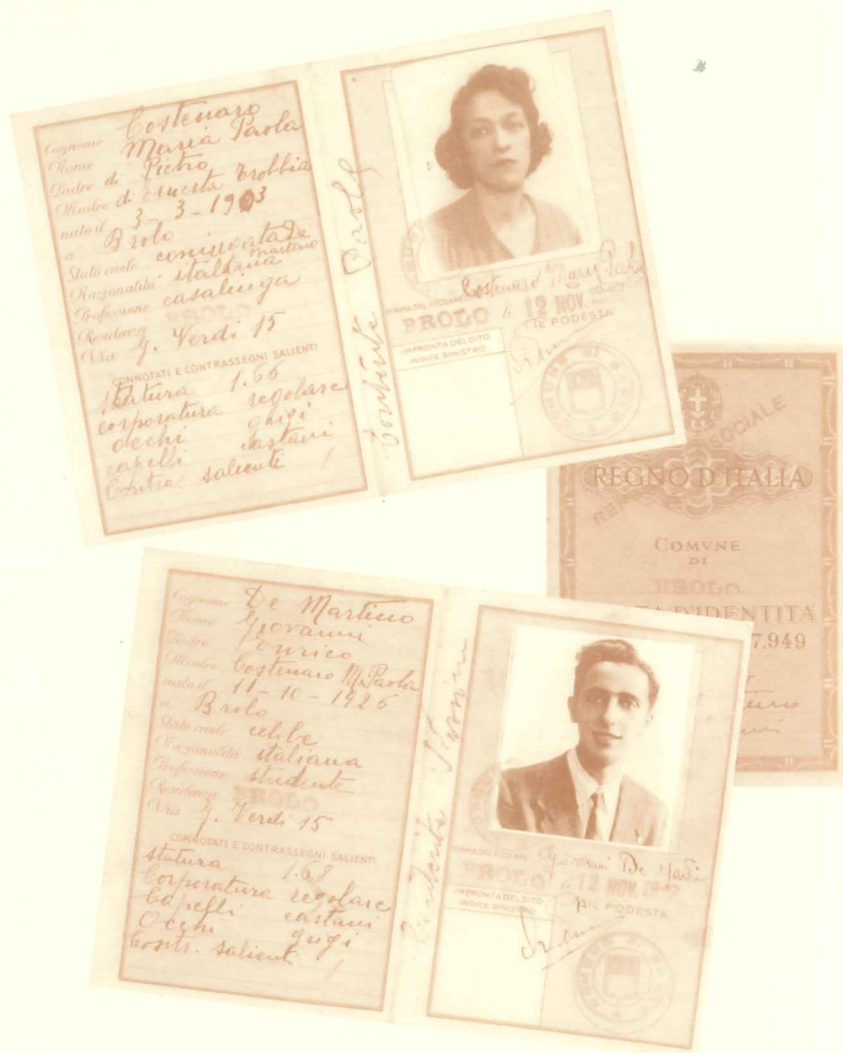 Cognome Costenaro
Nome Maria Paola
Padre di Pietro
Madre di Onesta Trobbia
nato il 3-3-1903
a Brolo
Stato civile coniugata De Martino
Nazionalità italiana
Professione casalinga
Residenza BROLO
Via G. Verdi 15
CONNOTATI E CONTRASSEGNI SALIENTI
Statura 1.65
corporatura regolare
occhi grigi
capelli castani
Contras salienti /
Costenaro Maria Paola
FIRMA DEL TITOLARE
BROLO li 12 NOV.
IL PODESTA
IMPRONTA DEL DITO
INDICE SINISTRO
REGNO D'ITALIA
REPUBBLICA SOCIALE
COMVNE
DI
BROLO
CARTA D'IDENTITA
7.949
Cognome De Martino
Nome Giovanni
Padre Enrico
Madre Costenaro M. Paola
nato il 11-10-1926
a Brolo
Stato civile celibe
Nazionalità italiana
Professione studente
Residenza BROLO
Via G. Verdi 15
CONNOTATI E CONTRASSEGNI SALIENTI
statura 1.68
Corporatura regolare
Capelli castani
Occhi grigi
Contr. salienti /
FIRMA DEL TITOLARE Giovanni De Martino
BROLO li 12 NOV.
IL PODESTA
IMPRONTA DEL DITO
INDICE SINISTRO